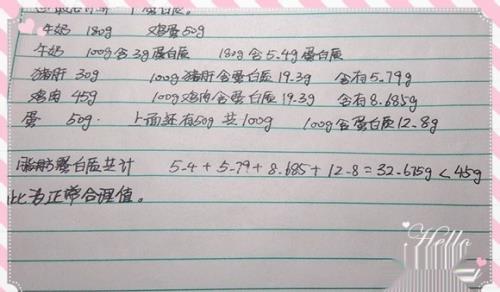 个蛋白质。
牛奶 180g 鸡蛋50g
牛奶 100g含3g蛋白质 180g含5.4g蛋白质
猪肝 30g 100g猪肝含蛋白质19.3g 含有5.79g
鸡肉 45g 100g鸡肉含蛋白质19.3g 含有8.685g
蛋 50g. 上面还有50g 共100g 100g含蛋白质12.8g
蛋白质共计 5.4+5.79+8.685+12.8=32.675g<45g
此为正常合理值。
Hello